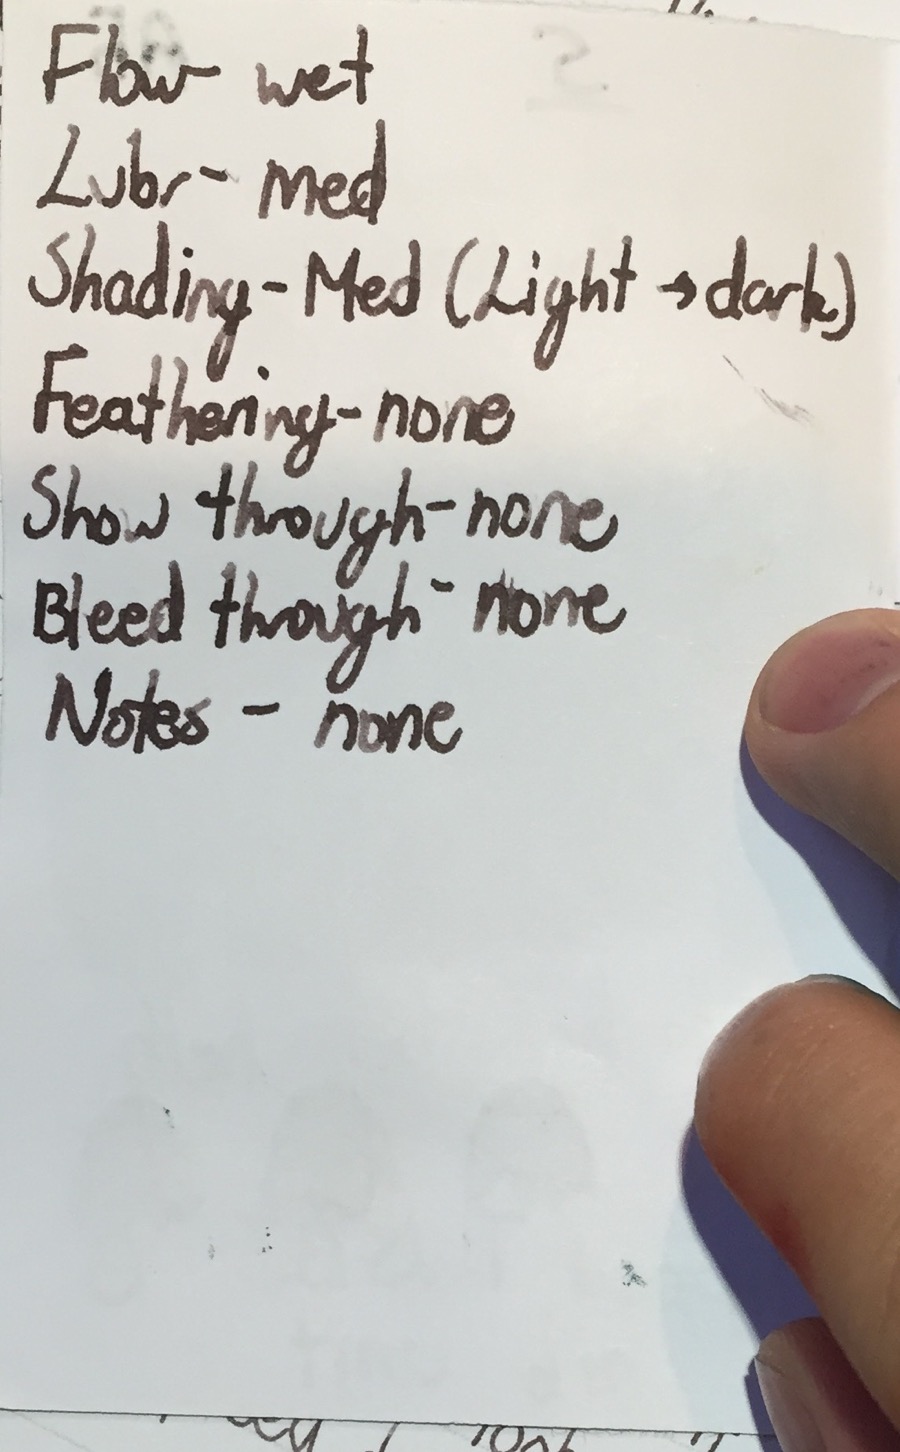 Flow- wet
Lubr- Med
Shading- Med (Light → dark)
Feathering- none
Show through- none
Bleed through- none
Notes - none